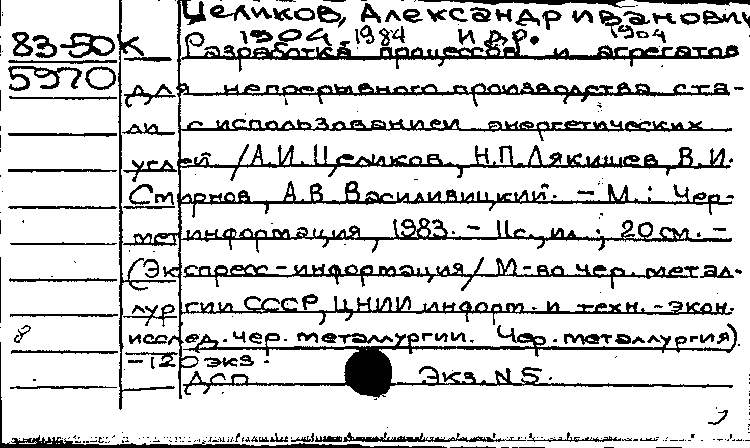 Целиков, Александр Иванович
83-50К Р 1904-1984 и др. 1904
5970 Разработка процессов и агрегатов
для непрерывного производства ста-
ли с использованием энергетических
углей / А.И. Целиков, Н.П. Лякишев, В.И.
Смирнов, А.В. Василивицкий. - М.: Чер-
метинформация, 1983. - 11с., ил.; 20см. -
(Экспресс-информация / М-во чер. метал-
лургии СССР, ЦНИИ информ. и техн.-экон.
8 исслед. чер. металлургии. Чер. металлургия)
-120 экз.
ДСП Экз. N 5.